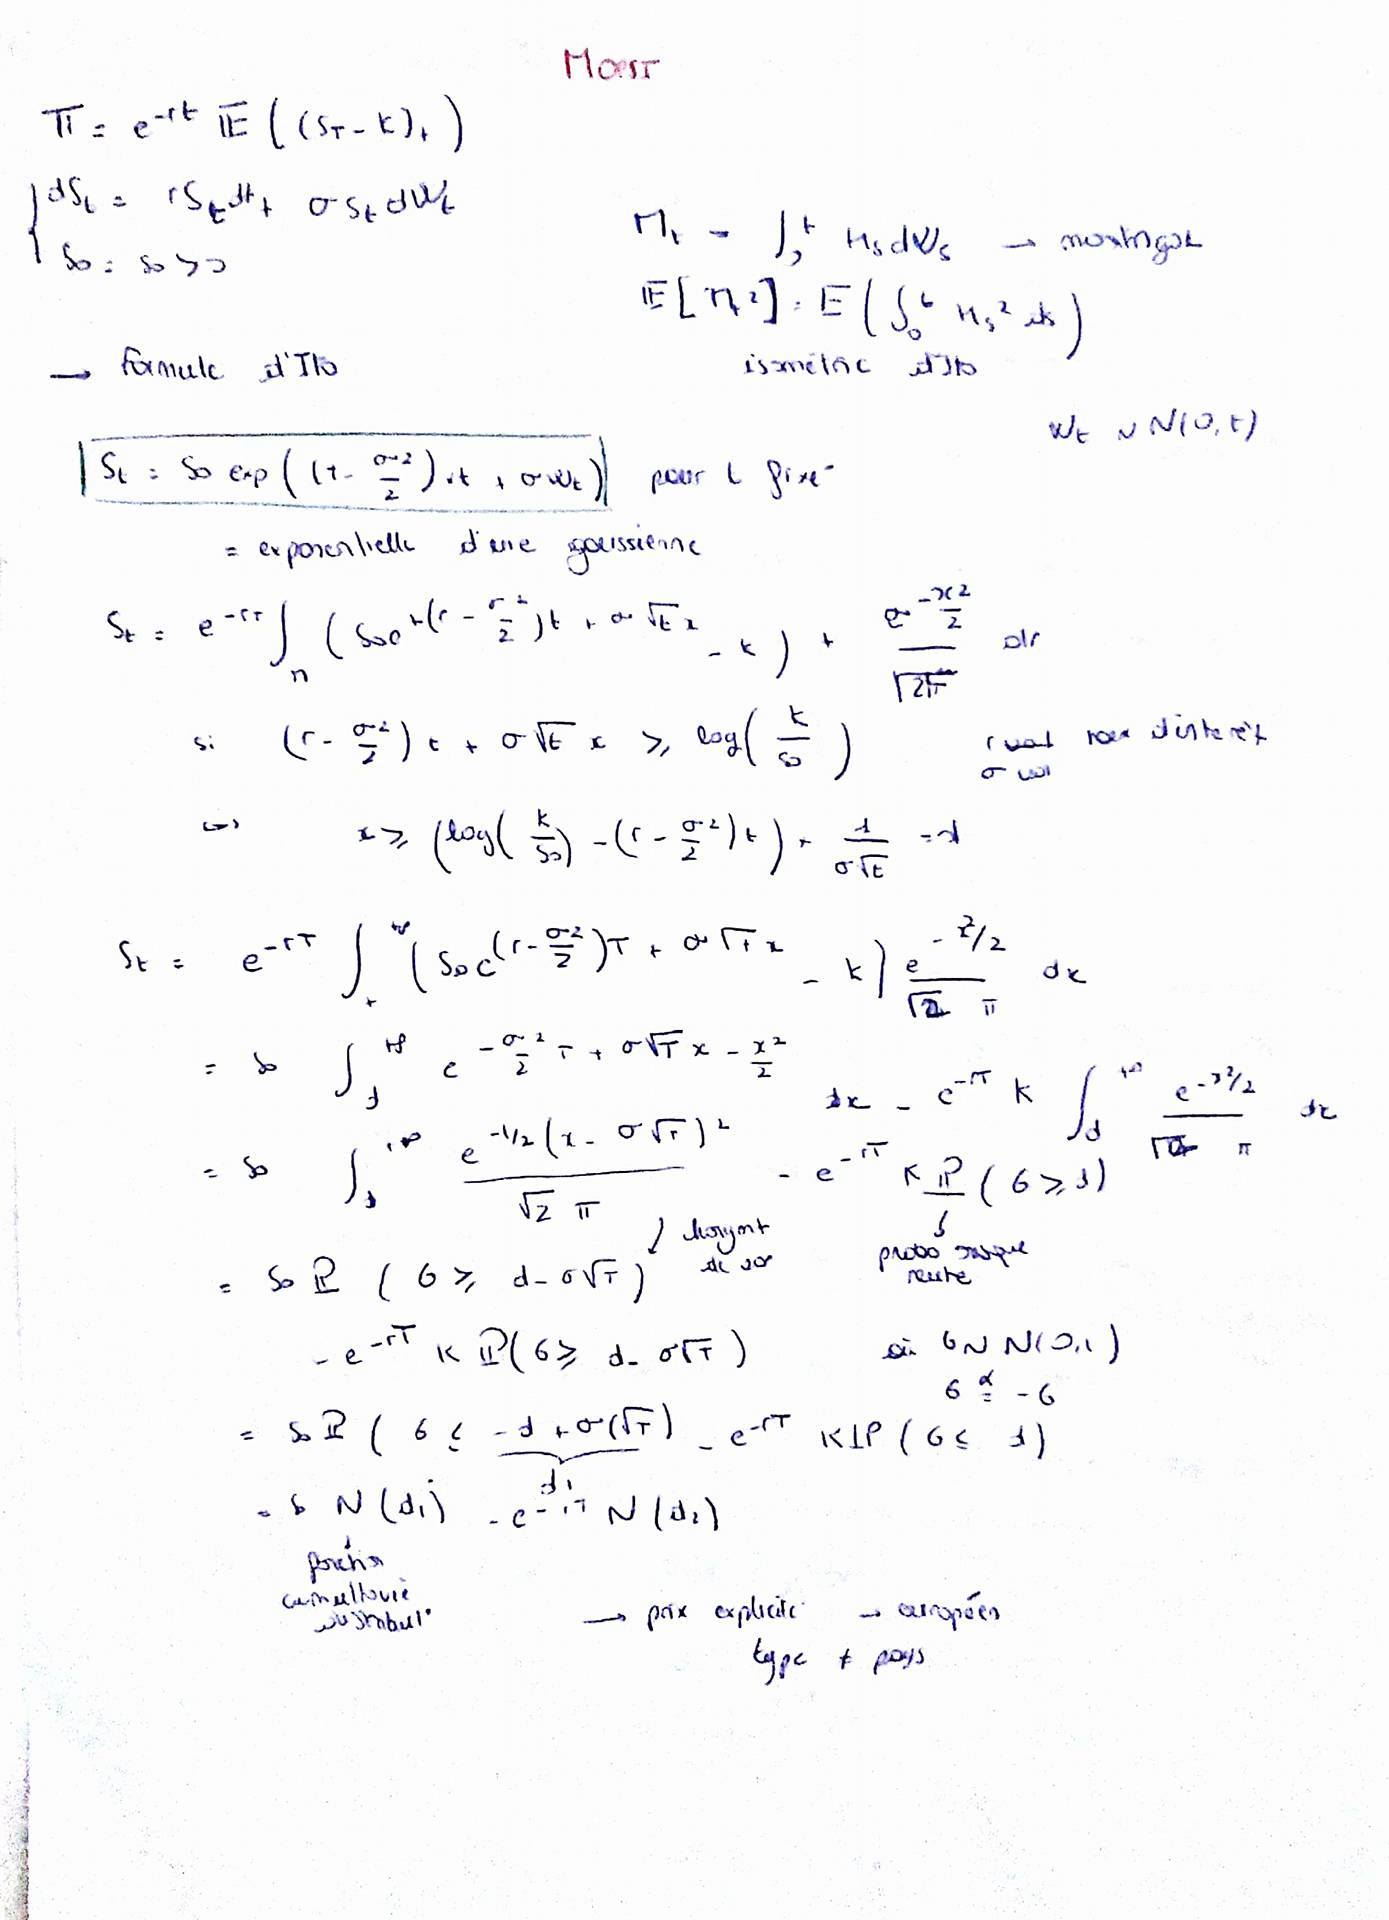 π = e^{-rt} 𝔼 ( (S_T - K)_+ )
{ dS_t = r S_t dt + σ S_t dW_t
S_0 = s_0 > 0
M_t = ∫_0^t H_s dW_s →
𝔼[M_t^2] = E ( ∫_0^t H_s^2 ds )
isométrie d'Ito
→ formule d'Ito
W_t ~ N(0,t)
S_t = S_0 exp( (r - σ^2/2).t + σ W_t ) pour t fixé
= exponentielle d'une gaussienne
S_t = e^{-rT} ∫ ( S_0 e^{+(r - σ^2/2)t + σ√t x} - K )_+ e^{-x^2/2} / √2π dx
si (r - σ^2/2) t + σ√t x ≥ log( K/S_0 )
r taux d'interêt
σ vol
⇔ x ≥ ( log( K/S_0 ) - (r - σ^2/2) t ) . 1/σ√t = d
S_t = e^{-rT} ∫_d^{+∞} ( S_0 e^{(r - σ^2/2)T + σ√T x} - K ) e^{-x^2/2} / √2 π dx
= S_0 ∫_d^{+∞} e^{-σ^2/2 T + σ√T x - x^2/2} dx - e^{-rT} K ∫_d^{+∞} e^{-x^2/2} / √2 π dx
= S_0 ∫_d^{+∞} e^{-1/2 (x - σ√T)^2} / √2 π - e^{-rT} K ℙ ( G ≥ d )
↓ changmt de var
proba risque neutre
= S_0 ℙ ( G ≥ d - σ√T )
- e^{-rT} K ℙ( G ≥ d - σ√T ) où G ~ N(0,1)
G =^d -G
= S_0 ℙ ( G ≤ -d + σ(√T) - e^{-rT} K ℙ ( G ≤ d )
d_1
= S N(d_1) - e^{-rT} N(d_2)
fonction
cumulative
distribut°
→ prix explicite → européen
type ≠ pays